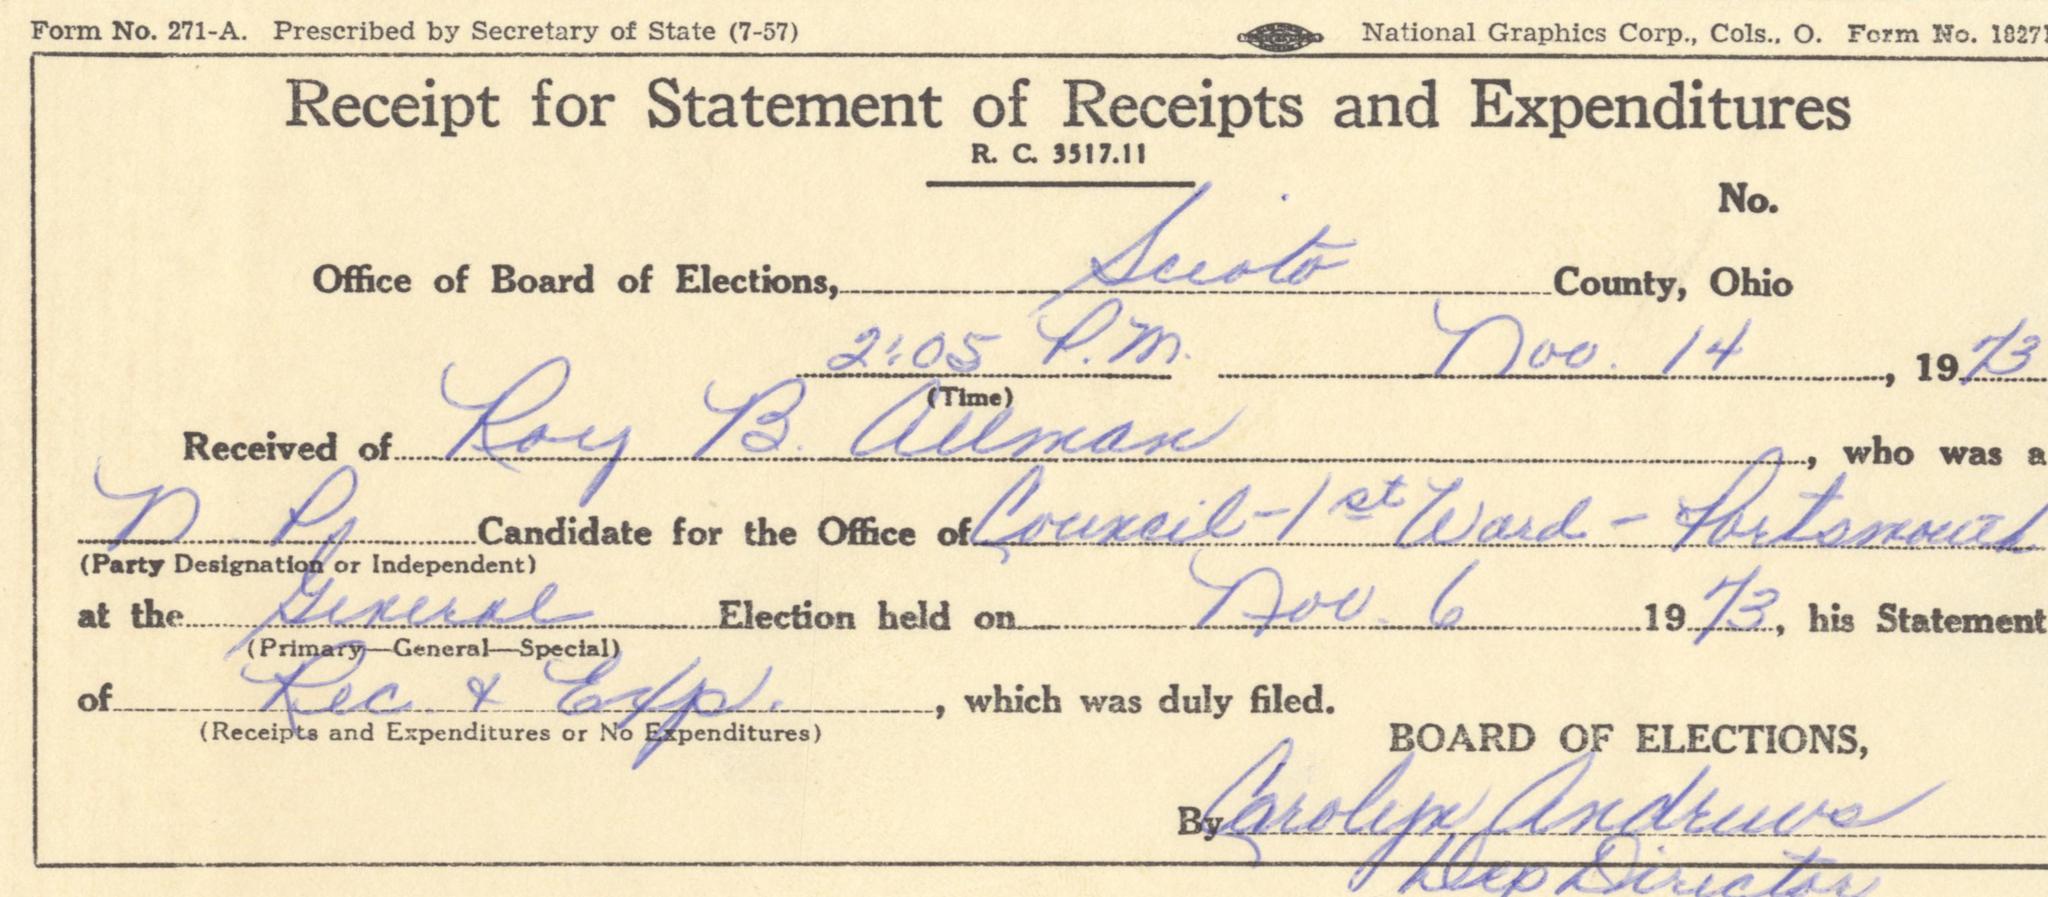 Form No. 271-A. Prescribed by Secretary of State (7-57) National Graphics Corp., Cols., O. Form No. 18271
Receipt for Statement of Receipts and Expenditures
R. C. 3517.11
No.
Office of Board of Elections, Scioto County, Ohio
2:05 P.M. Nov. 14, 1973
(Time)
Received of Roy B. Allman, who was a
N. P. Candidate for the Office of Council - 1st Ward - Portsmouth
(Party Designation or Independent)
at the General Election held on Nov. 6 1973, his Statement
(Primary—General—Special)
of Rec. & Exp., which was duly filed.
(Receipts and Expenditures or No Expenditures)
BOARD OF ELECTIONS,
By Carolyn Andrews
Dep Director